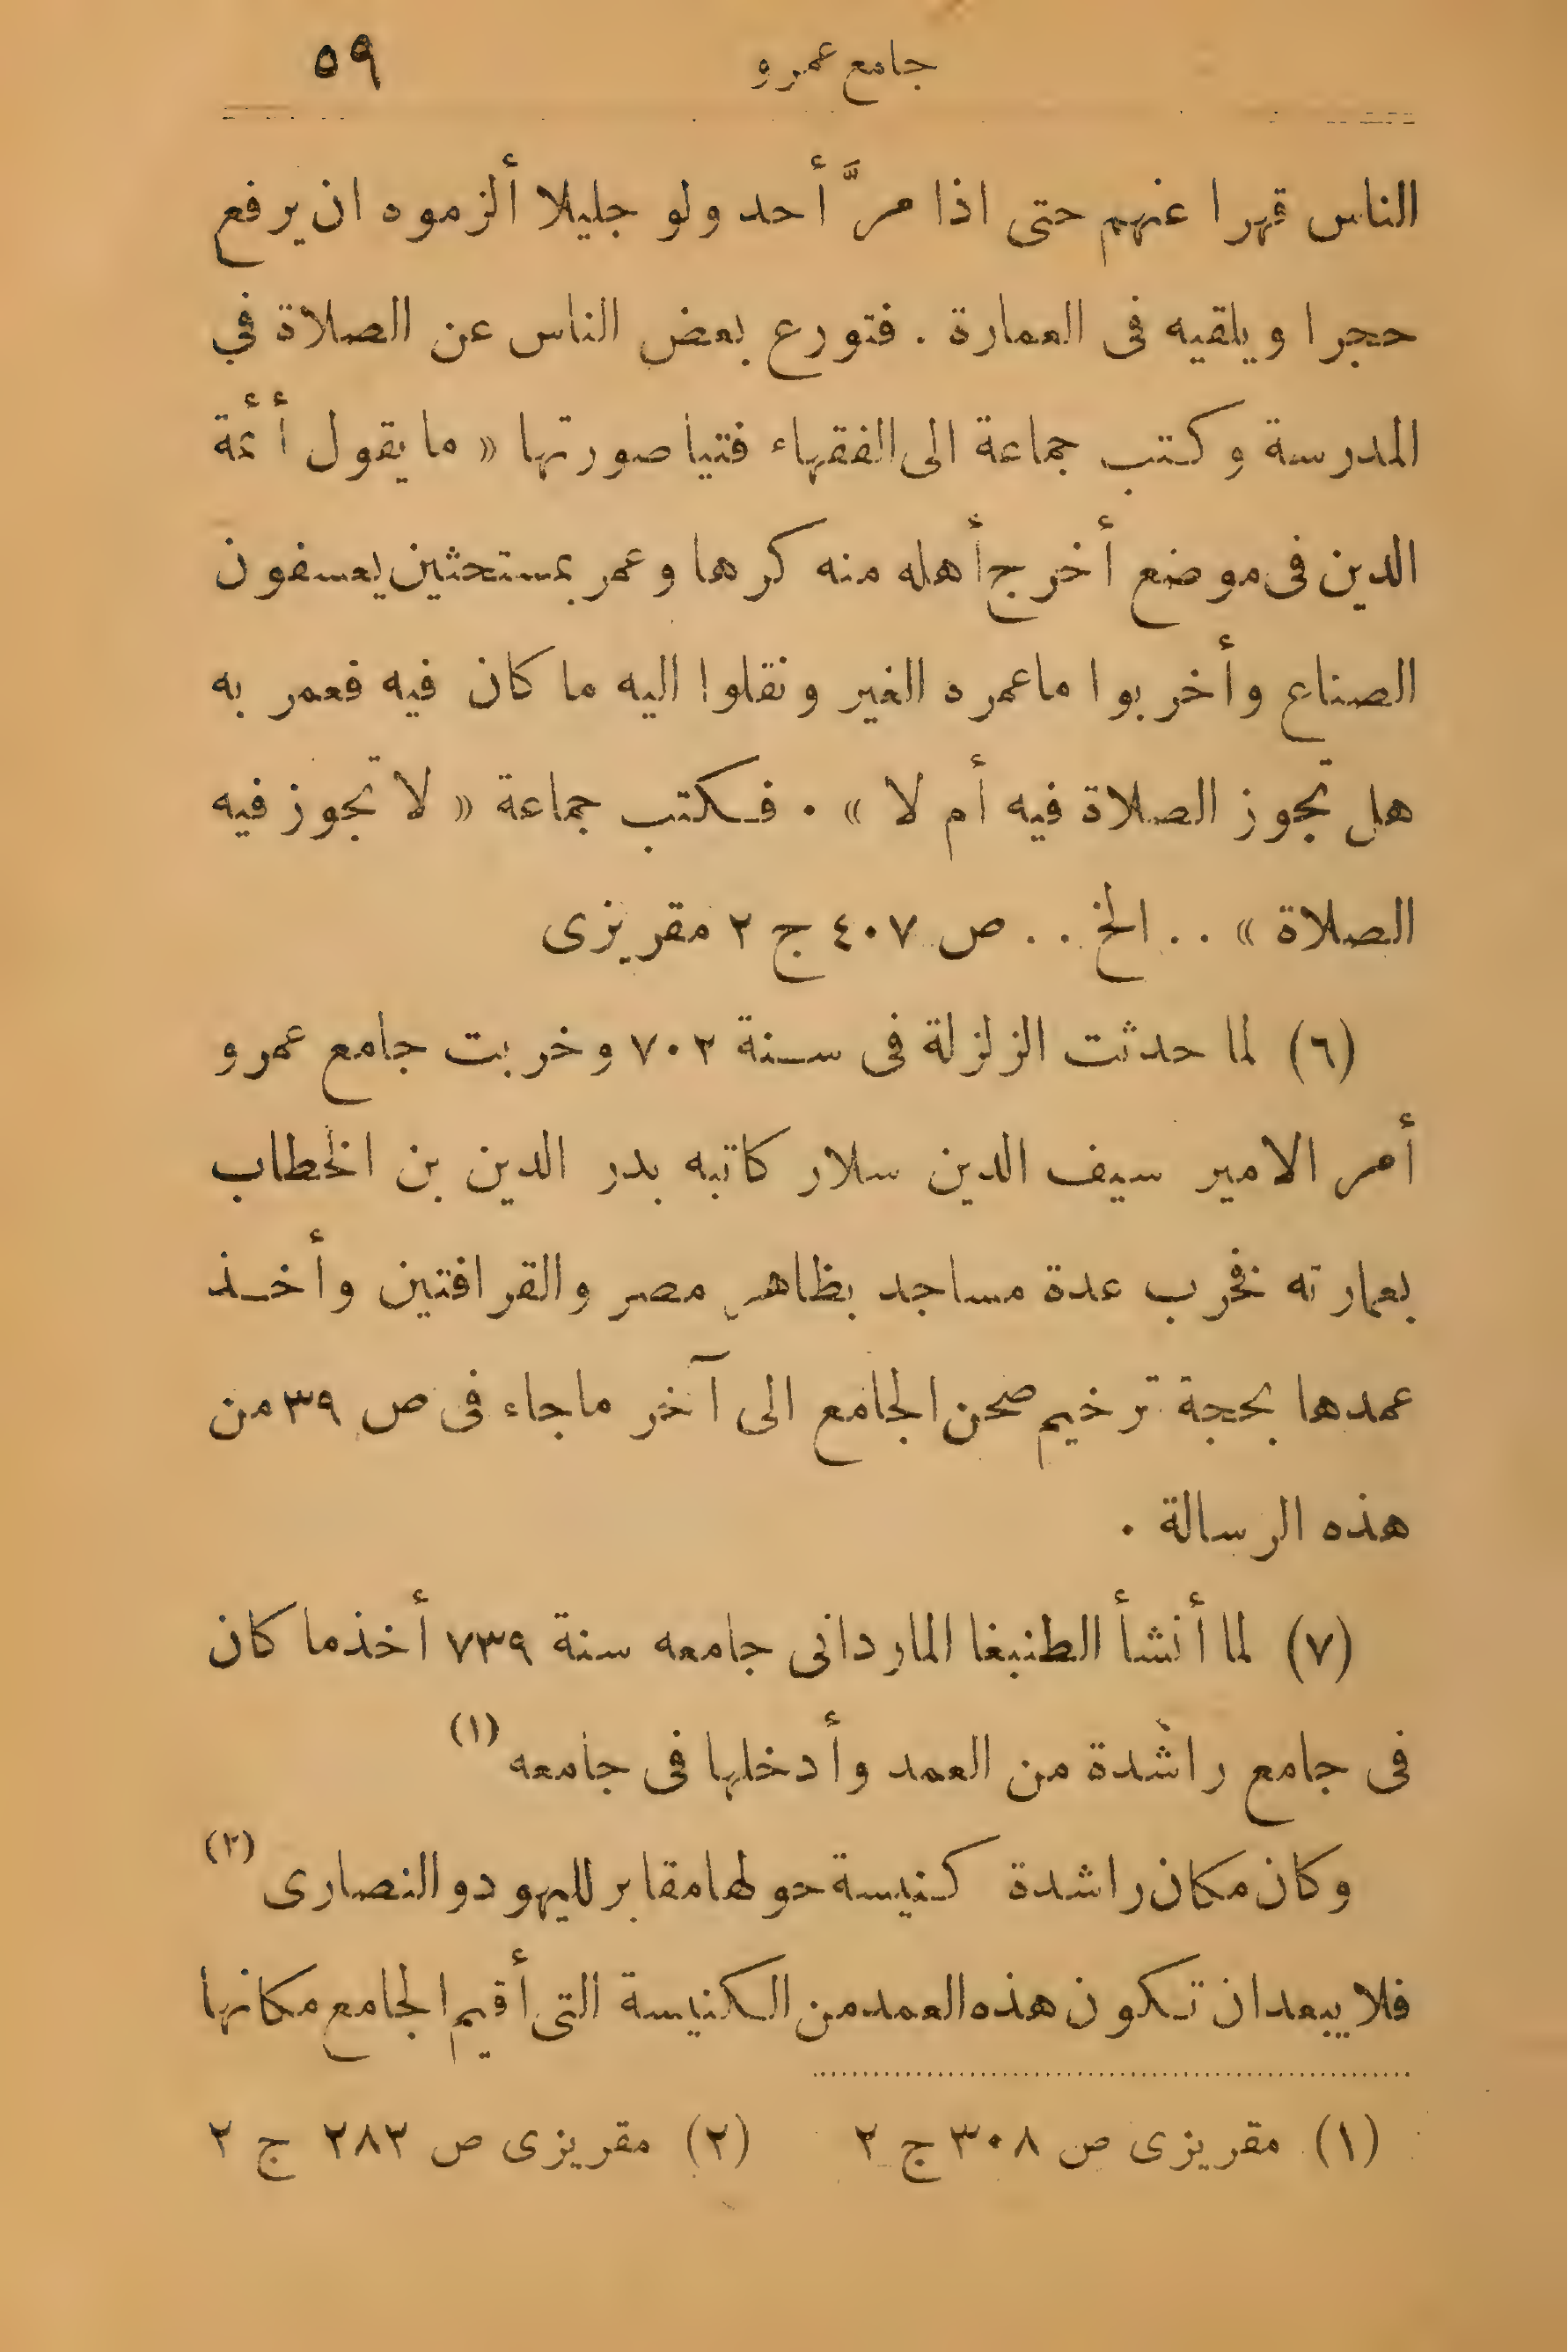 جامع عمرو ٥٩
الناس قهرا عنهم حتى اذا مرَّ أحد ولو جليلا ألزموه ان يرفع
حجرا ويلقيه فى العمارة . فتورع بعض الناس عن الصلاة في
المدرسة وكتب جماعة الى الفقهاء فتيا صورتها « ما يقول أئمة
الدين فى موضع أخرج أهله منه كرها وعمر بمستحثين يعسفون
الصناع وأخربوا ما عمره الغير ونقلوا اليه ما كان فيه فعمر به
هل تجوز الصلاة فيه أم لا » . فكتب جماعة « لا تجوز فيه
الصلاة » . . الخ . . ص ٤٠٧ ج ٢ مقريزى
(٦) لما حدثت الزلزلة فى سنة ٧٠٢ وخربت جامع عمرو
أمر الامير سيف الدين سلار كاتبه بدر الدين بن الخطاب
بعمارته فخرب عدة مساجد بظاهر مصر والقرافتين وأخذ
عمدها بحجة ترخيم صحن الجامع الى آخر ما جاء فى ص ٣٩ من
هذه الرسالة .
(٧) لما أنشأ الطنبغا الماردانى جامعه سنة ٧٣٩ أخذ ما كان
فى جامع راشدة من العمد وأدخلها فى جامعه (١)
وكان مكان راشدة كنيسة حولها مقابر لليهود والنصارى (٢)
فلا يبعد ان تكون هذه العمد من الكنيسة التى أقيم الجامع مكانها
(١) مقريزى ص ٣٠٨ ج ٢ (٢) مقريزى ص ٢٨٢ ج ٢